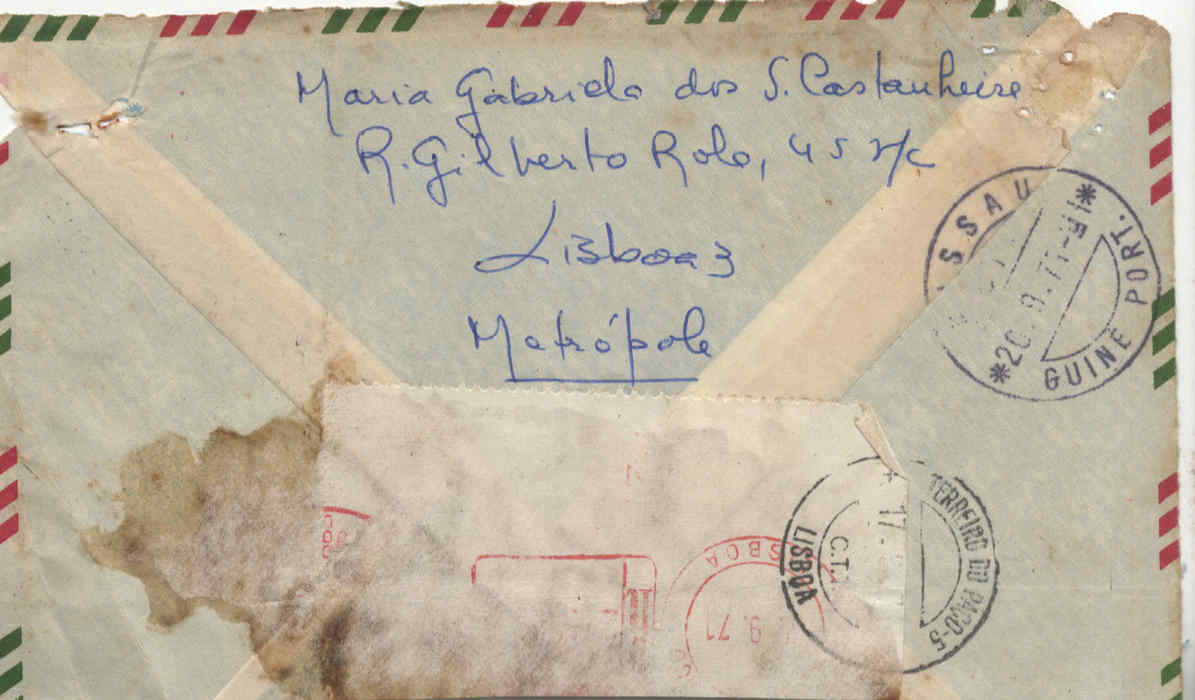 Maria Gabriela dos S. Castanheira
R. Gilberto Rola, 45 r/c
Lisboa 3
Metrópole
SSAU
*20. 9. 71
GUINÉ PORT.
TERREIRO DO PAÇO-5
17
C.T.
LISBOA
SBOA
9. 71